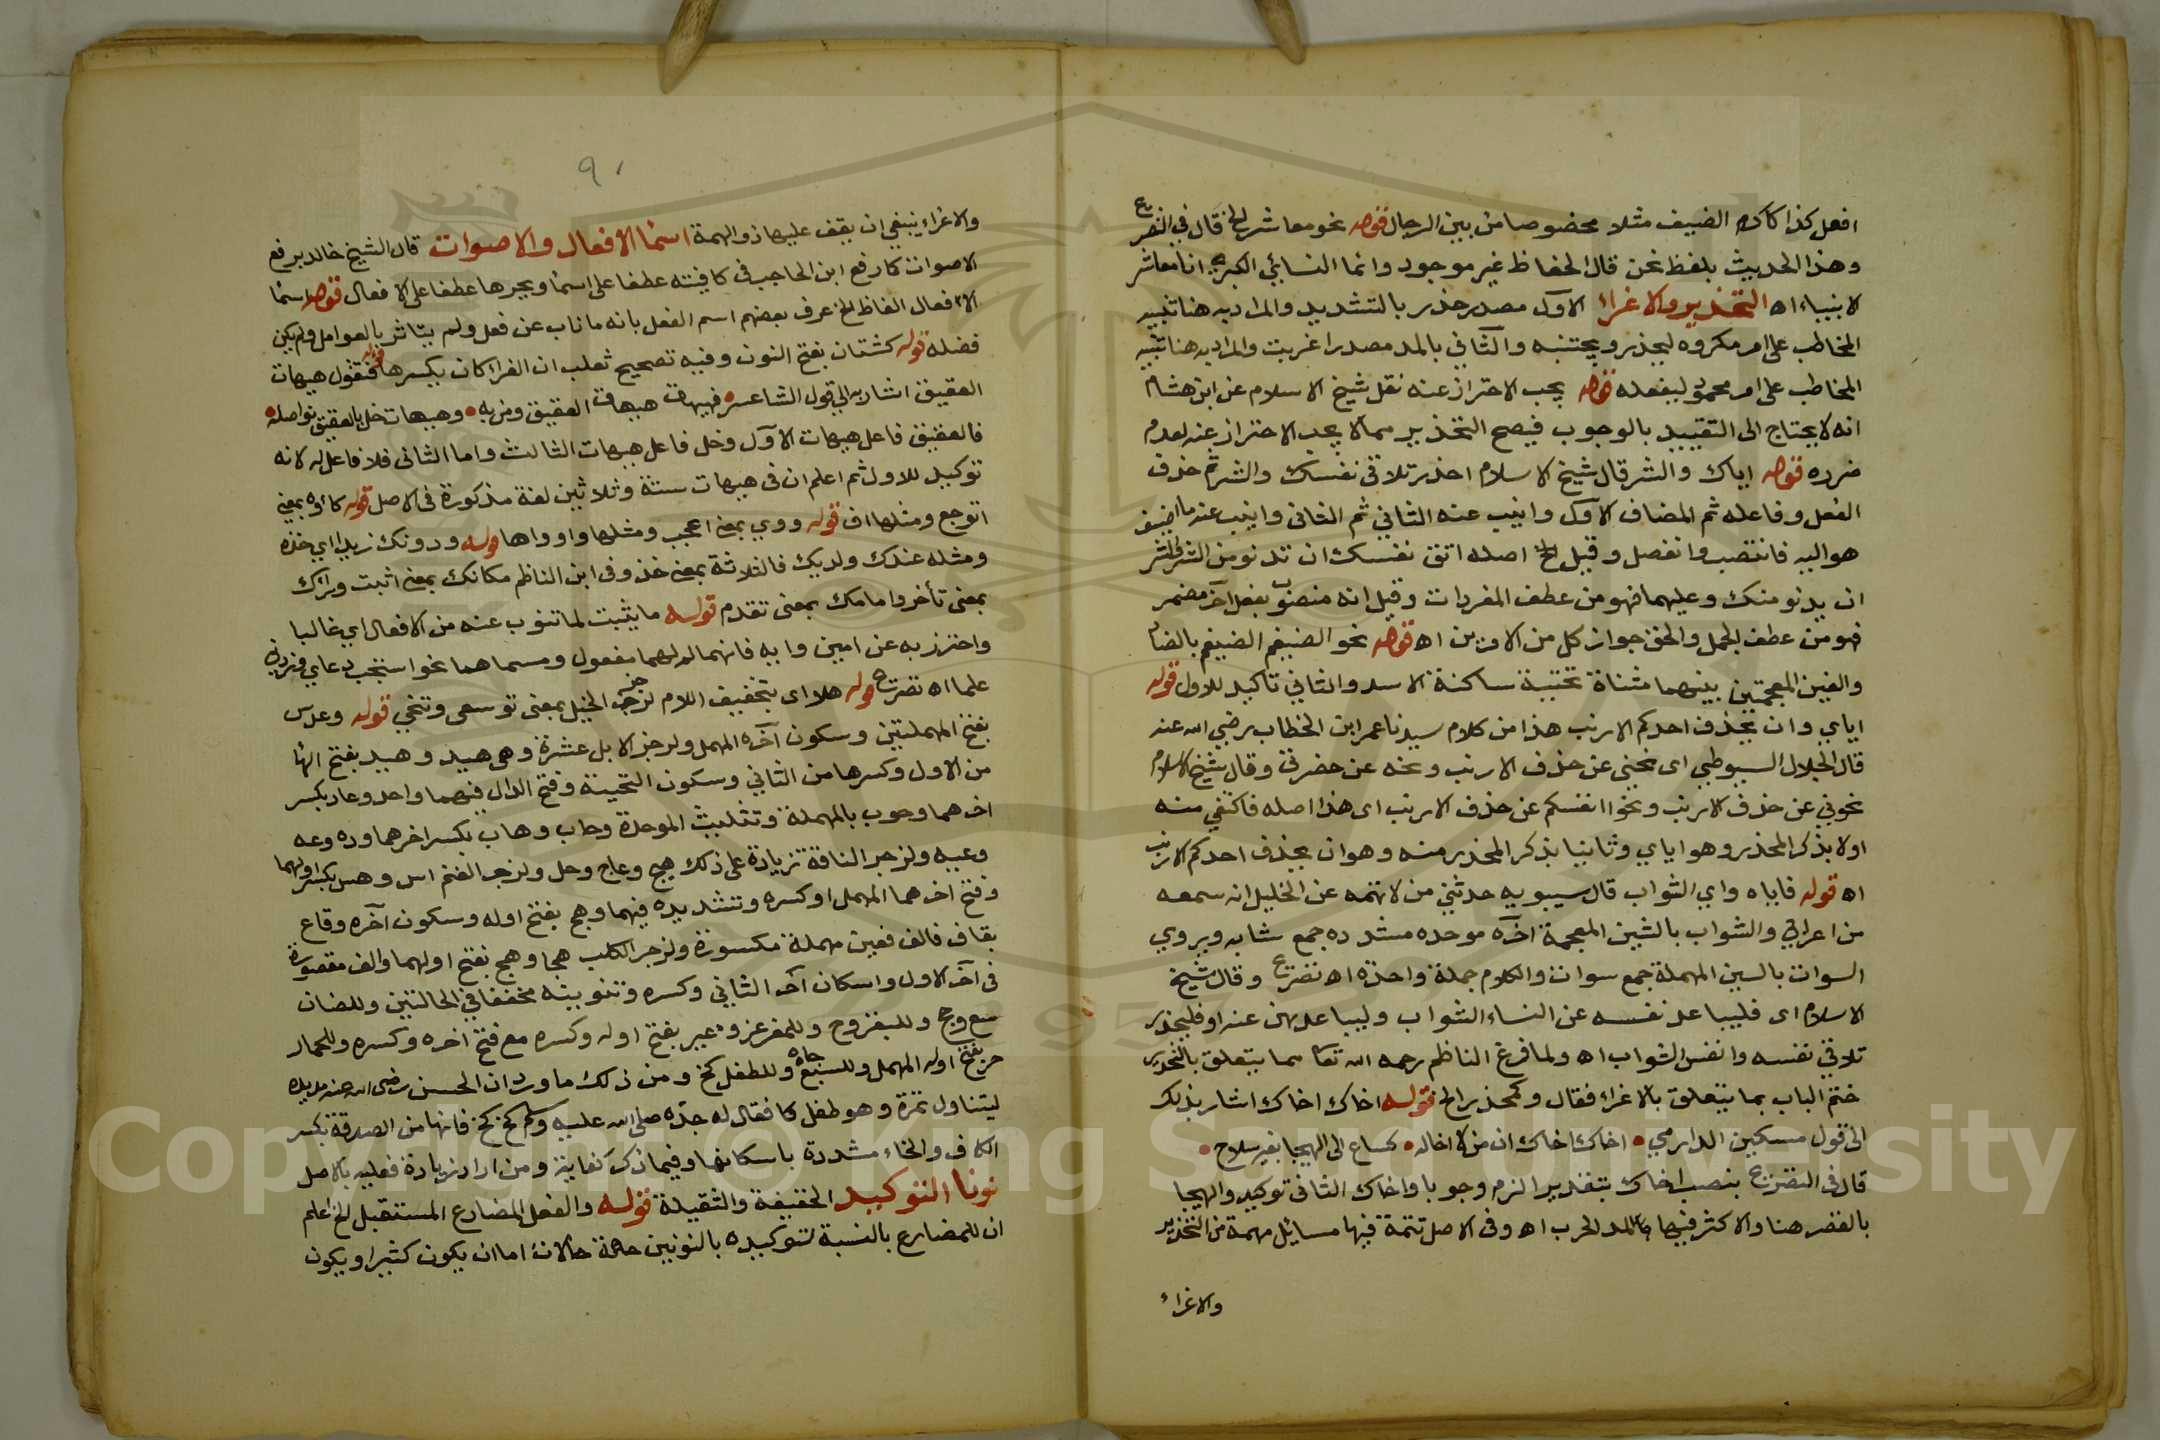 افعل كذا كاكرم الضيف مثلا مخصوصا من بين الرجال قوله نحو معاشر الخ قال في التصريح
وهذا الحديث بلفظ نحن قال الحفاظ غير موجود وانما النسائي الكبري انا معاشر
لانبياء اه التحذير والاغراء الاول مصدر حذر بالتشديد والمراد به هنا تنبيه
المخاطب على امر مكروه ليحذره ويجتنبه والثاني بالمد مصدر اغريت والمراد به هنا تنبيه
المخاطب على امر محمود ليفعله قوله يجب الاحتراز عنه نقل شيخ الاسلام عن ابن هشام
انه لا يحتاج الى التقييد بالوجوب فيصح التحذير مما لا يجب الاحتراز عنه لعدم
ضرره قوله اياك والشر قال شيخ الاسلام احذر تلاقي نفسك والشر ثم حذف
الفعل وفاعله ثم المضاف الاول وانيب عنه الثاني ثم الثاني وانيب عنه ما اضيف
هو اليه فانتصب وانفصل وقيل الخ اصله اتق نفسك ان تدنو من الشر والشر
ان يدنو منك وعليهما فهو من عطف المفردات وقيل انه منصوب بفعل آخر مضمر
فهو من عطف الجمل والحق جواز كل من الامرين اه قوله نحو الضيغم الضيغم بالضاد
والغين المعجمتين بينهما مثناة تحتية ساكنة الاسد والثاني تاكيد للاول قوله
اياي وان يحذف احدكم الارنب هذا من كلام سيدنا عمر ابن الخطاب رضي الله عنه
قال الجلال السيوطي اي نحني عن حذف الارنب ونحه عن حضرتي وقال شيخ الاسلام
نحوني عن حذف الارنب ونحوا انفسكم عن حذف الارنب اى هذا اصله فاكتفي منه
اولا بذكر المحذر وهو اياي وثانيا بذكر المحذر منه وهو ان يحذف احدكم الارنب
اه قوله فاياه واي الشواب قال سيبويه حدثني من لا تتهمه عن الخليل انه سمعه
من اعرابي والشواب بالشين المعجمة آخره موحده مشدده جمع شابه ويروي
السوات بالسين المهملة جمع سوات والكلام جملة واحدة اه تصريح وقال شيخ
الاسلام اى فليباعد نفسه عن النساء الشواب وليباعدهن عنه او فليحذر
تلاقي نفسه وانفس الشواب اه ولما فرغ الناظم رحمه الله تعا مما يتعلق بالتحذير
ختم الباب بما يتعلق بالاغراء فقال وكمحذر الخ قوله اخاك اخاك اشار بذلك
الى قول مسكين الدارمي • اخاك اخاك ان من لا اخاله • كساع الى الهيجا بغير سلاح •
قال في التصريح بنصب اخاك بتقدير الزم وجوبا واخاك الثاني توكيد والهيجا
بالقصر هنا والاكثر فيها بالمد الحرب اه وفي الاصل تتمة فيها مسائل مهمة من التحذير
والاغراء
٩٠
والاغراء ينبغي ان يقف عليها ذو الهمة اسما الافعال والاصوات قال الشيخ خالد برفع
الاصوات كا رفع ابن الحاجب في كافيته عطفا على اسما ويجرها عطفا على الافعال قوله اسما
الافعال الفاظ الخ عرف بعضهم اسم الفعل بانه ما ناب عن فعل ولم يتاثر بالعوامل ولم يكن
فضله قوله كشتان بفتح النون وفيه تصحيح ثعلب ان الفرا كان يكسرها قوله فتقول هيهات
العقيق اشار به الى قول الشاعر • فهيهات هيهات العقيق ومن به • وهيهات خل بالعقيق نواصله •
فالعقيق فاعل هيهات الاول وخل فاعل هيهات الثالث واما الثاني فلا فاعل له لانه
توكيد للاول ثم اعلم ان في هيهات ستة وثلاثين لغة مذكورة في الاصل قوله كاوه بمعنى
اتوجع ومثلها اف قوله ووي بمعنى اعجب ومثلها وا وواها قوله ودونك زيدا اي خذه
ومثله عندك ولديك فالثلاثة بمعنى خذ وفي ابن الناظم مكانك بمعنى اثبت وراك
بمعنى تأخر وامامك بمعنى تقدم قوله ما يثبت لما تنوب عنه من الافعال اي غالبا
واحترز به عن امين وايه فانهما لم لهما مفعول ومسماهما نحو استجب دعاي وزدني
علما اه تصريح قوله هلا اى بتخفيف اللام لزجر الخيل بمعنى توسعى وتنحي قوله وعدس
بفتح المهملتين وسكون آخره المهمل ولزجر الابل عشرة وهى هيد وهيد بفتح الها
من الاول وكسرها من الثاني وسكون التحتية وفتح الدال فيهما واحد وعاد بكسر
اخرهما وحوب بالمهملة وتثليث الموحدة وحاب وهاب بكسر اخرهما وده وعه
وعيه ولزجر الناقة زيادة على ذلك هيج وعاج وحل ولزجر الغنم اس وهس بكسر اولهما
وفتح اخرهما المهمل او كسره وتشديده فيهما وهج بفتح اوله وسكون آخره وقاع
بقاف فالف فعين مهملة مكسورة ولزجر الكلب هجا وهج بفتح اولهما والف مقصورة
في آخر الاول واسكان آخر الثاني وكسره وتنوينه مخففا في الحالتين وللضان
سع وج وللبقر وح وللمعز عز وعيز بفتح اوله وكسره مع فتح اخره وكسره وللحمار
حر بفتح اوله المهمل وللسبع جاه وللطفل كخ ومن ذلك ما ورد ان الحسن رضى الله عنه مد يده
ليتناول تمرة وهو طفل كا فقال له جده صلى الله عليه وسلم كخ كخ فانها من الصدقة بكسر
الكاف والخاء مشددة باسكانها وفيما ذكر كفاية ومن اراد زيادة فعليه بالاصل
نونا التوكيد الخفيفة والثقيلة قوله والفعل المضارع المستقبل الخ اعلم
ان للمضارع بالنسبة لتوكيده بالنونين حالات اما ان يكون كثيرا ويكون
Copyright © King Saud University